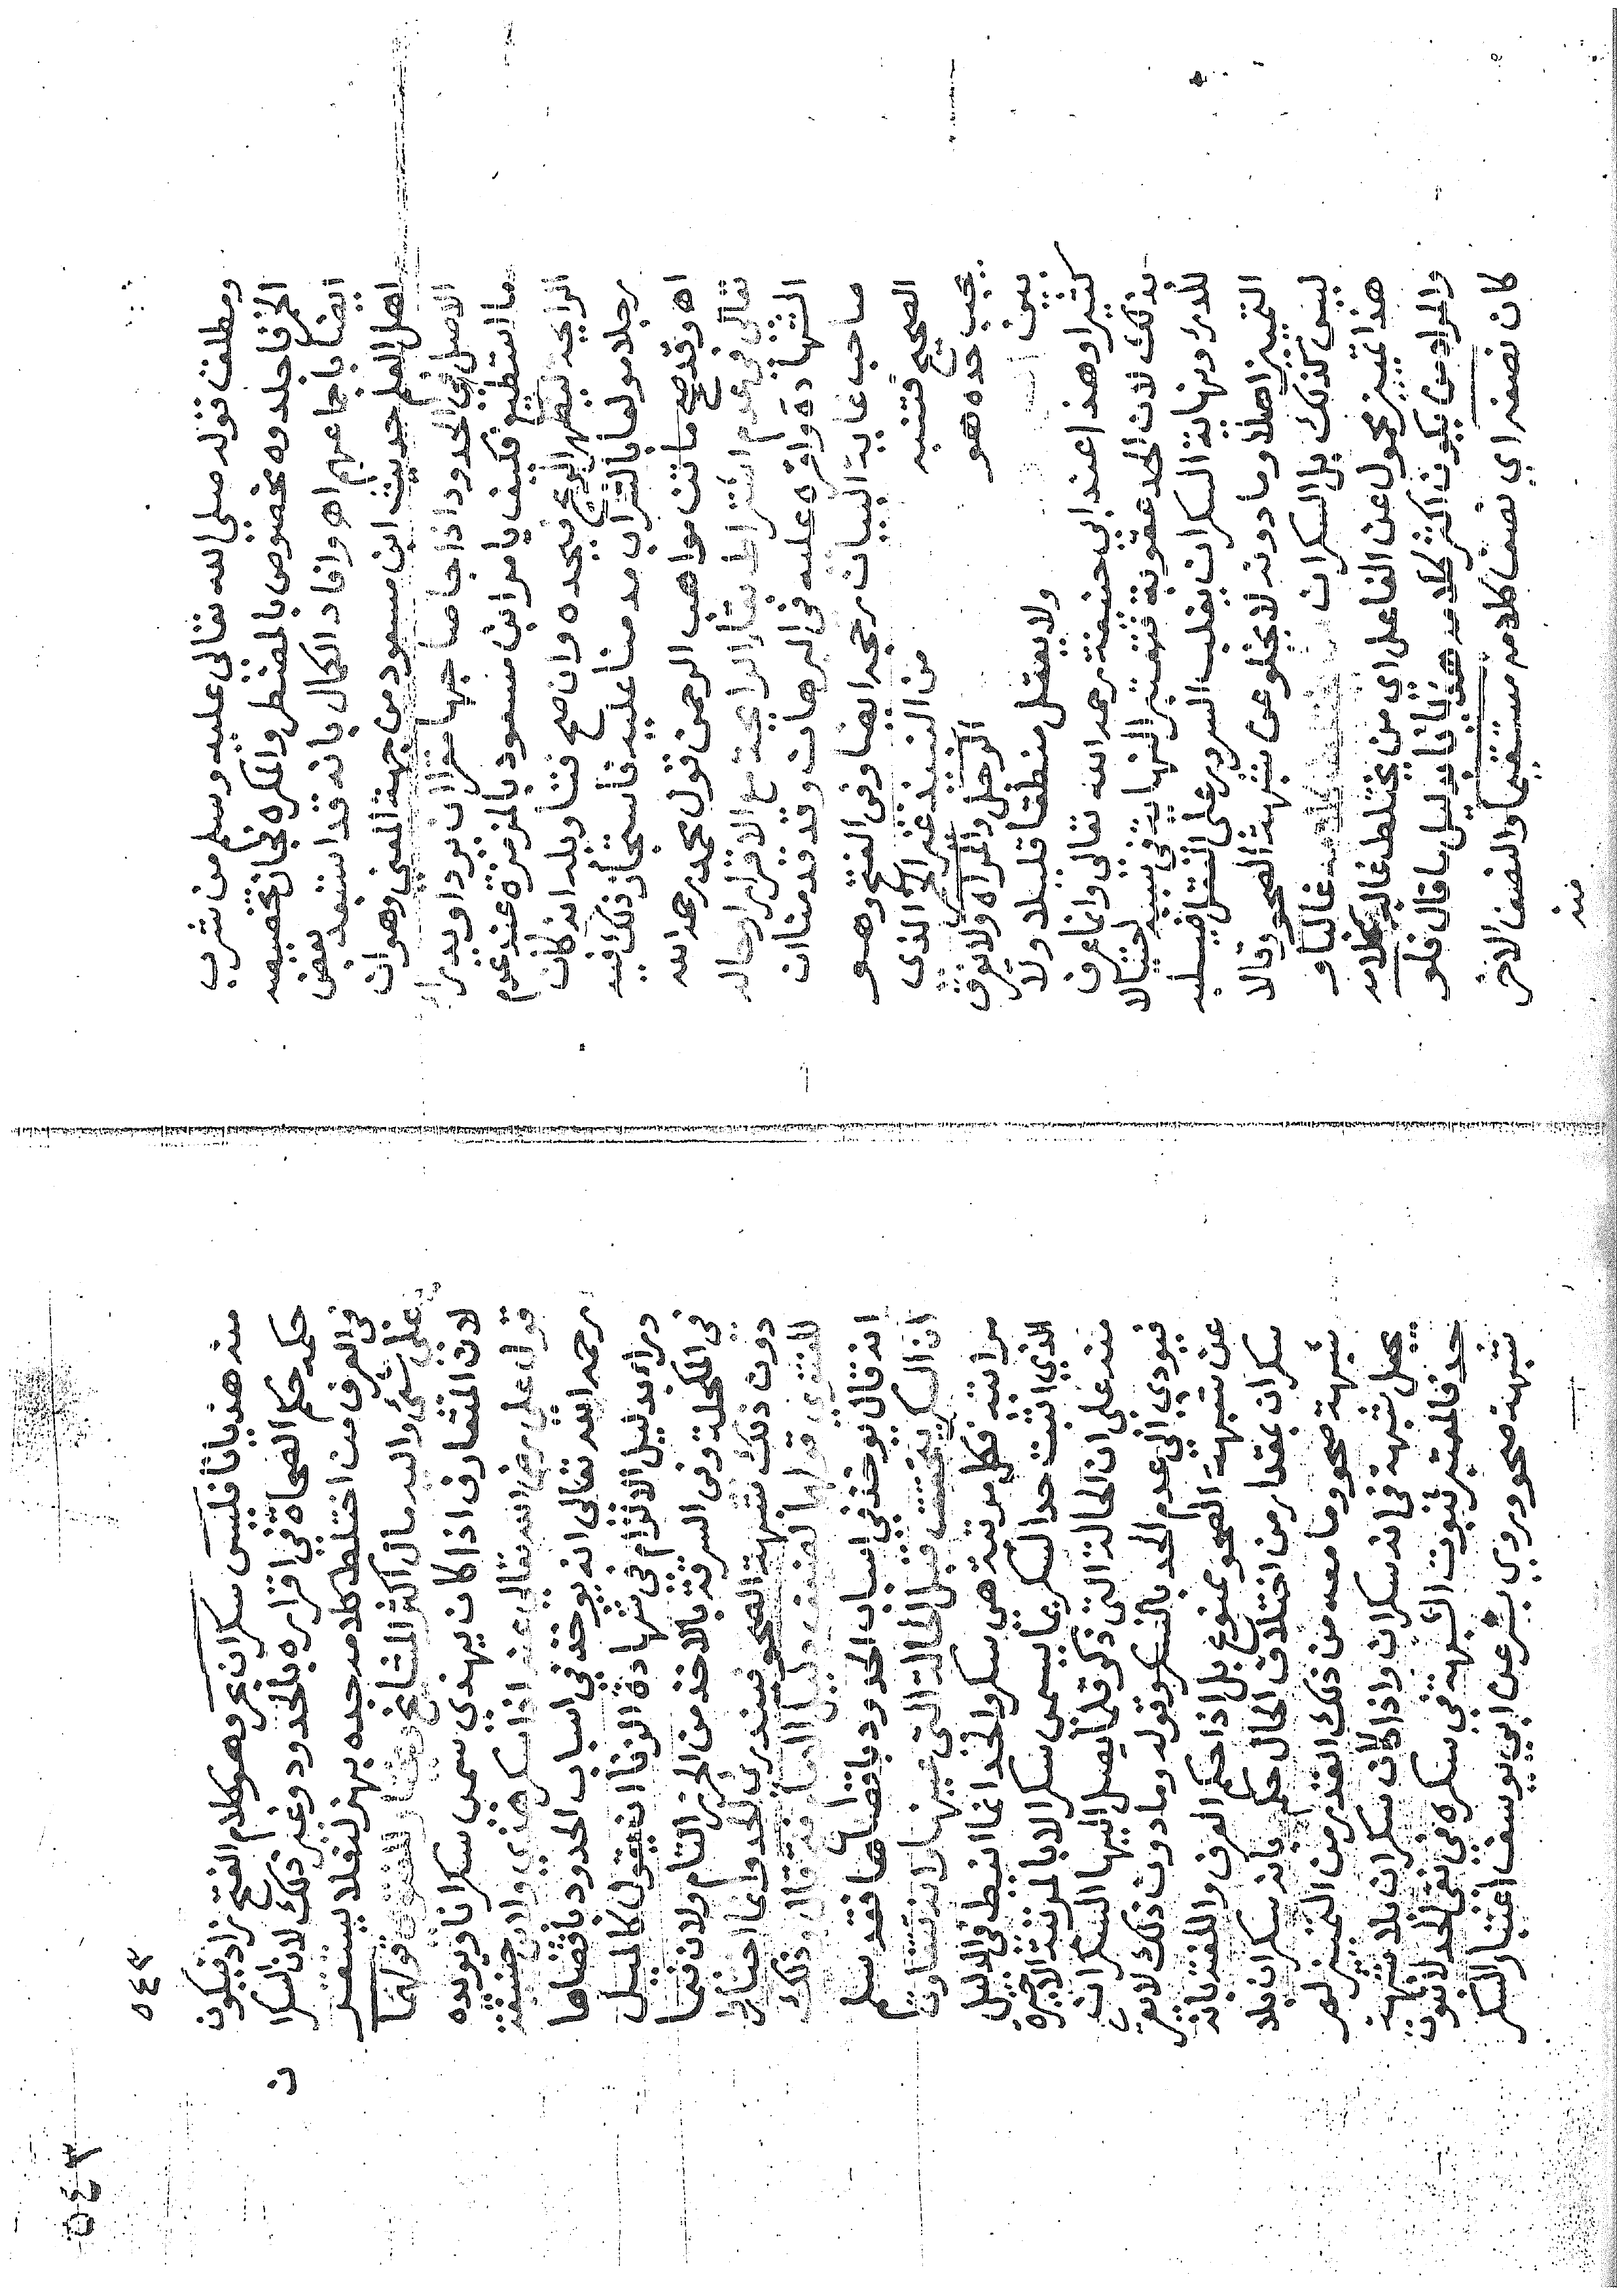 ومطلق قوله صلى الله تعالى عليه وسلم من شرب
الخمر فاجلدوه مخصوص بالمضطر والمكره فجاز تخصيصه
ايضا باجماعهم اه وافاد الكمال بانه قد استبعد بعض
اهل العلم حديث ابن مسعود من جهة المعنى وهو ان
الاصل في الحدود اذا جا صاحبها مقرا ان يرد او يدرا
ما استطيع فكيف يامر ابن مسعود بالمزمزة عند عدم
الرايحة ليظهر الريح فيحده وان صح فتاويله انه كان
رجلا مولعا بالشراب مدمنا عليه فاستجاز ذلك فيه
اه وقد صح ما تن مواهب الرحمن قول محمد رحمه الله
تعالى في عدم اشتراط بقا الرايحة مع الاقرار وحال
الشهادة واقره عليه في البرهان وقد قدمنا ان
صاحب غاية البيان رجحه ايضا وفي الفتح وهو
الصحيح فتنبه من النبيذ غير الذي
يجب حده هو الرجل والمراه ولا يفرق
بين ولا يعقل منطقا قليلا ولا
كثيرا وهذا عند ابي حنيفة رحمه الله تعالى وانما عرف
بذلك لان الحد عقوبة فتعتبر النهاية في سببه احتيالا
للدرء ونهاية السكران يغلب السرور على العقل فيسلبه
التمييز اصلا وما دونه لا يخلو عن شبهة الصحو وقالا
ليس كذلك بل السكران غالبا و
هذا تمييز محول عن الفاعل اي من يختلط غالب كلامه
والمراد من يكون اكثر كلامه هذيانا بدليل ما قال فلو
كان نصفه اي نصف كلامه مستقيما والنصف الاخر
منه
٥٤٣
٥٤٣
منه هذيانا فليس سكران بحر وهو كلام الفتح زاد فيكون
حكمه حكم الصحاة في اقراره بالحدود وغير ذلك لان السكرا ن
في العرف من اختلط كلامه جده بهزله فلا يستقر
على شي واليه مال اكثر المشايخ ويختار للفتوى قولهما
لان المتعارف اذا كان يهذي سمي سكرانا وايدوه
قول علي رضي الله تعالى عنه اذا سكر هذي ولابي حنيفة
رحمه الله تعالى انه يوخذ في اسباب الحدود باقصاها
دراء بدليل الالتزام في شهادة الزنا ان يقول كالميل
في المكحلة وفي السرقة بالاخذ من الحرز التام ولان فيما
دون ذلك شبهة الصحو فيندري الحد وانما اختار
للفتوى قولهما لضعف دليل الامام فتقال وذلك
انه قال يوخذ في اسباب الحدود باقصاها فقد سلم
ان السكر يتحقق قبل الحالة التي عينها وانه تتفاوت
مراتبه فكل مرتبة هي سكر والحد انما انيط في الدليل
الذي اثبت حد السكر بما يسمى سكرا لا بالمرتبة الاخيرة
منه على ان الحالة التي ذكر قلما يصل اليها السكران
فيودي الى عدم الحد بالسكر وقوله وما دون ذلك لا يعرى
عن شبهة الصحو ممنوع بل اذا حكم العرف واللغة بانه
سكران بمقدار من اختلاف الحال حكم بانه سكران بلا
شبهة صحو وما معه من ذلك القدر من التمييز لم
يجعل شبهة في انه سكران واذا كان سكران بلا شبهة
حد فالمعتبر ثبوت الشبهة في سكره في نفي الحد لا ثبوت
شبهة صحو وروى بشر عن ابي يوسف اعتبار السكر